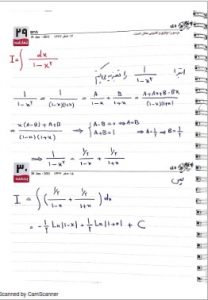 ۲۹
I = ∫ dx / (1 - x²)
ابتدا 1 / (1 - x²) را تجزیه میکنیم
1/(1-x²) = 1/((1-x)(1+x)) = A/(1-x) + B/(1+x) = (A + Ax + B - Bx)/((1-x)(1+x))
= (x(A-B) + A+B)/((1-x)(1+x)) ⇒ { A-B=0 ⇒ A=B
A+B=1 ⇒ A=½ → B=½
⇒ 1/(1-x²) = ½/(1-x) + ½/(1+x)
۳۰
پس
I = ∫ ( ½/(1-x) + ½/(1+x) ) dx
= -½ Ln|1-x| + ½ Ln|1+x| + C
Scanned by CamScanner